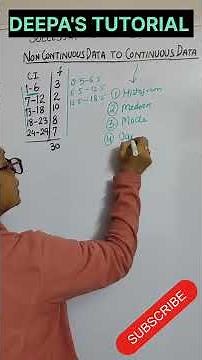 DEEPA'S TUTORIAL
NON CONTINUOUS DATA TO CONTINUOUS DATA
C.I. f
1-6 3 0.5-6.5 ① Histogram
7-12 2 6.5-12.5 ② Median
13-18 10 12.5-18.5 ③ Mode
18-23 8 ④
24-29 7
30
SUBSCRIBE